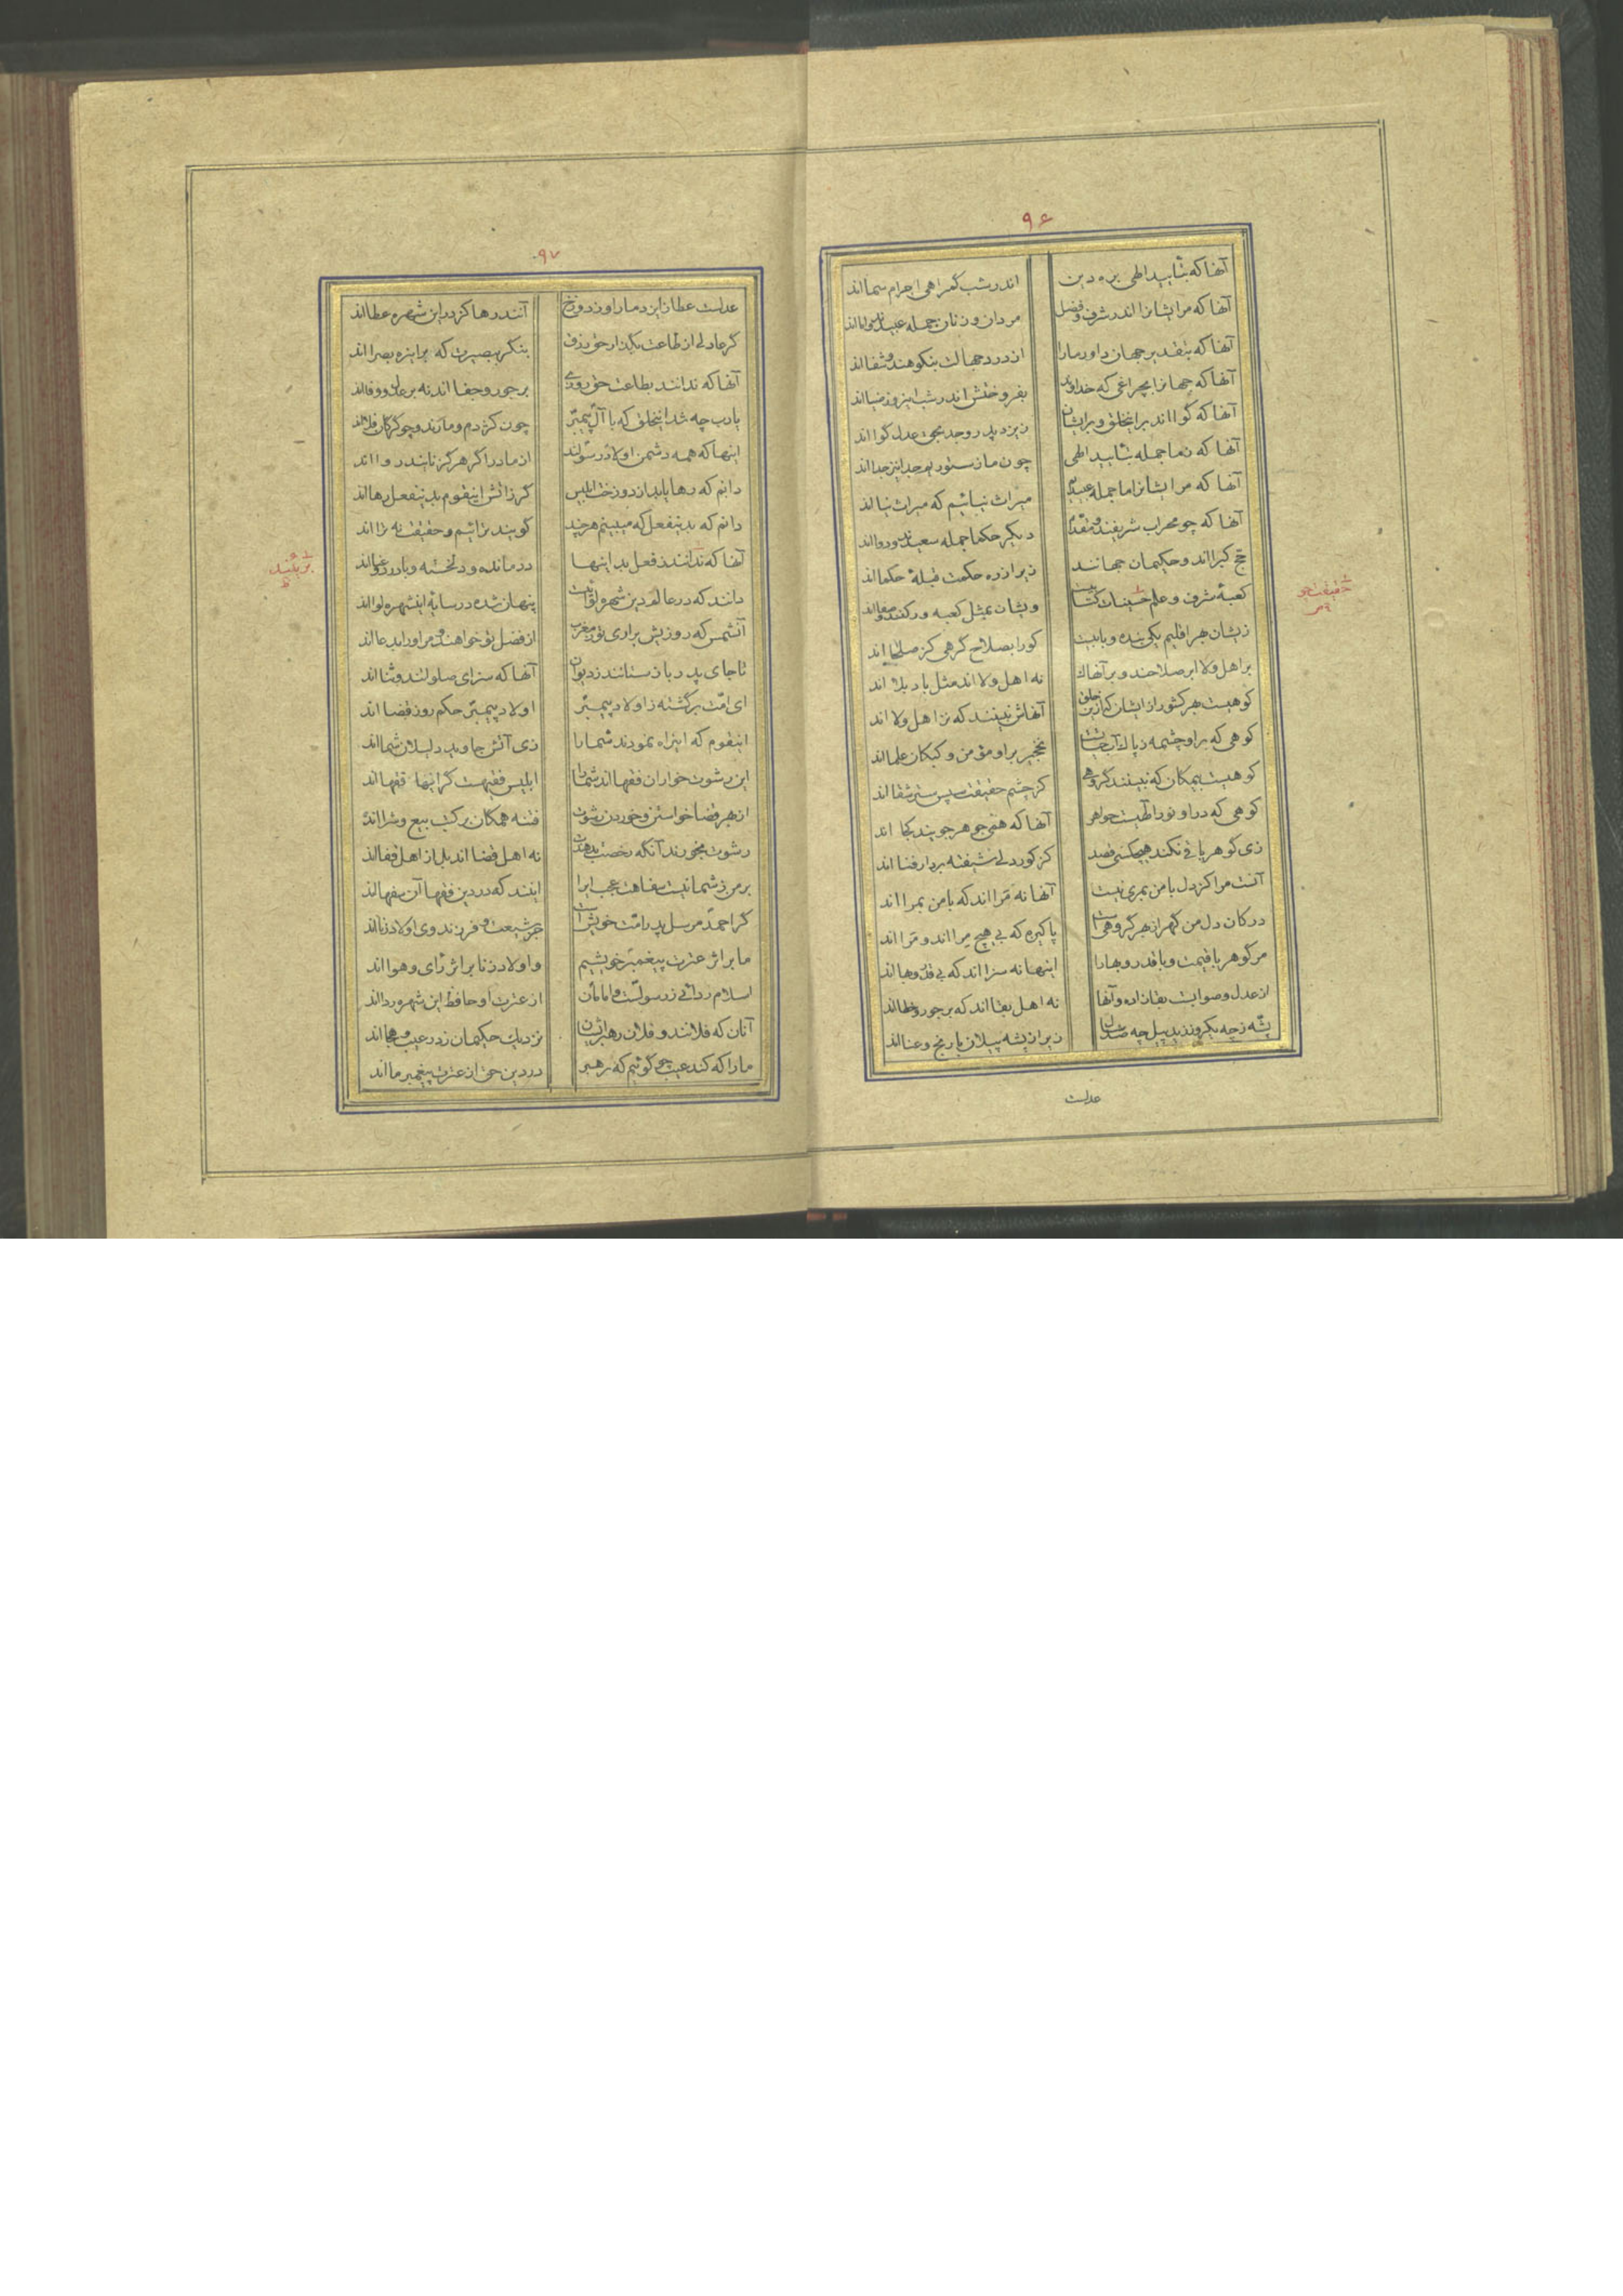 ۹۶
آنها که بتأیید الهی بره دین
اندر شب گمراهی اجرام سما اند
آنها که مر ایشانرا اندر شرف و فضل
مردان و زنان جمله عبید
آنها که بتقدیر جهان داور ما را
از درد جهالت بنکو هند و شفا اند
آنها که جهانرا بچراغی که خداوند
بفروختش اندر شب از نور ضیا اند
آنها که گوا اند بر اینخلق و بر ایشان
زیزد پدر و جد بحق عدل گوا اند
آنها که ز ما جمله بتأیید الهی
چون ما ز ستور بخرد نیز جدا اند
آنها که مر ایشانرا ما جمله عبیدیم
میراث نیائیم که میراث نیا اند
آنها که چو محراب شریفند و مقدم
دیگر حکما جمله سعید
حج کبرا اند و حکیمان جهانند
زیرا زره حکمت قبلهٔ حکما اند
کعبهٔ شرف و علم
ویشان بمثل کعبه و رکنند و صفا اند
زیشان بهر اقلیم یکی بنده و بابیت
کو را بصلاح کرهی کز صلحا اند
بر اهل ولا ابر صلاحند و بر آنها ک
نه اهل ولا اند مثل باد بلا اند
کوهیست بهر کشور از ایشان که از این خلق
آنهاش نبینند که نز اهل ولا اند
کوهی که بر او چشمهٔ پاک
نخجیر بر او مؤمن و کبکان علما اند
کوهیست بیمکان که نبینند گروهی
کز چشم حقیقت سپس ستر شقا اند
کوهی که در او نور الهیست جواهر
آنها که همی جوهر جویند کجا اند
زی گوهر باقی نکند هیچکسی قصد
کز کور دلی شیفته بر دار فنا اند
آنست مرا کز دل با من بمری نیست
آنها نه مرا اند که با من بمرا اند
در کان دل من گهر از بهر گروهی است
پاکیزه که بی هیچ مرا اند و مرا اند
مر گوهر با قیمت و با قدر و بها را
اینها نه سزا اند که بی قدر و بها اند
از عدل و صوابست بقا زاده و آنها
نه اهل بقا اند که بر جور و خطا اند
پشه ز چه یکروز زید پیل چه صد سال
زیرا ز پشه پیلان با رنج و عنا اند
عدلست
حقیقت
۹۷
عدلست عطا زایزد ما را و ز دوزخ
آنند رها کز در این شهره عطا اند
گر عادلی از طاعت بگذار حق رزق
بنگر ببصیرت که بر این ره بصرا اند
آنها که ندانند بطاعت حق روزی
بر جور و جفا اند نه بر عدل و وفا اند
یارب چه شد اینخلق که با آل پیمبر
چون کژدم و مارند و چو گرگان
اینها که همه دشمن اولاد رسولند
از مادر اگر هرگز نایند روا اند
دانم که رها یابد از دوزخ ابلیس
گر ز آتش اینقوم بدینفعل رها اند
دانم که بدینفعل که میبینم هر چند
گویند براییم و حقیقت نه برا اند
آنها که ندانند ز فعل بد اینها
درمانده و دلخسته و با درد و عنا اند
دانند که در عالم دین شهره
پنهان شده در سایهٔ اینشهره لوا اند
آنشمس که روزیش براری تو ز مغرب
از فضل تو خواهند مر او را بدعا اند
تا جای پدر باز ستانند ز دیوان
آنها که سزای صلوتند و ثنا اند
ای امت برگشته ز اولاد پیمبر
اولاد پیمبر حکم روز قضا اند
اینقوم که این راه نمودند شما را
زی آتش جاوید دلیلان شما اند
این رشوت خواران فقها اند شما را
ابلیس فقیهست گر اینها فقها اند
از بهر قضا خواستن و خوردن رشوت
فتنه همگان بر کتب بیع و شرا اند
رشوت بخورند آنگه رخصت بدهندت
نه اهل قضا اند بل از اهل قفا اند
بر من ز شما نیست سفاهت عجب ایرا
اینند که در دین فقها آن سفها اند
گر احمد مرسل پدر امت خویش است
جز شیعت و فرزند وی اولاد زنا اند
ما بر اثر عترت پیغمبر خویشیم
و اولاد زنا بر اثر رای و هوا اند
اسلام ردائی ز رسولست و امامان
از عترت او حافظ این شهره ردا اند
آنان که فلانند و فلان رهبر ایشان
نزدیک حکیمان ز در عیب و هجا اند
ما را که کند عیب چو گوئیم که رهبر
در دین حق از عترت پیغمبر ما اند